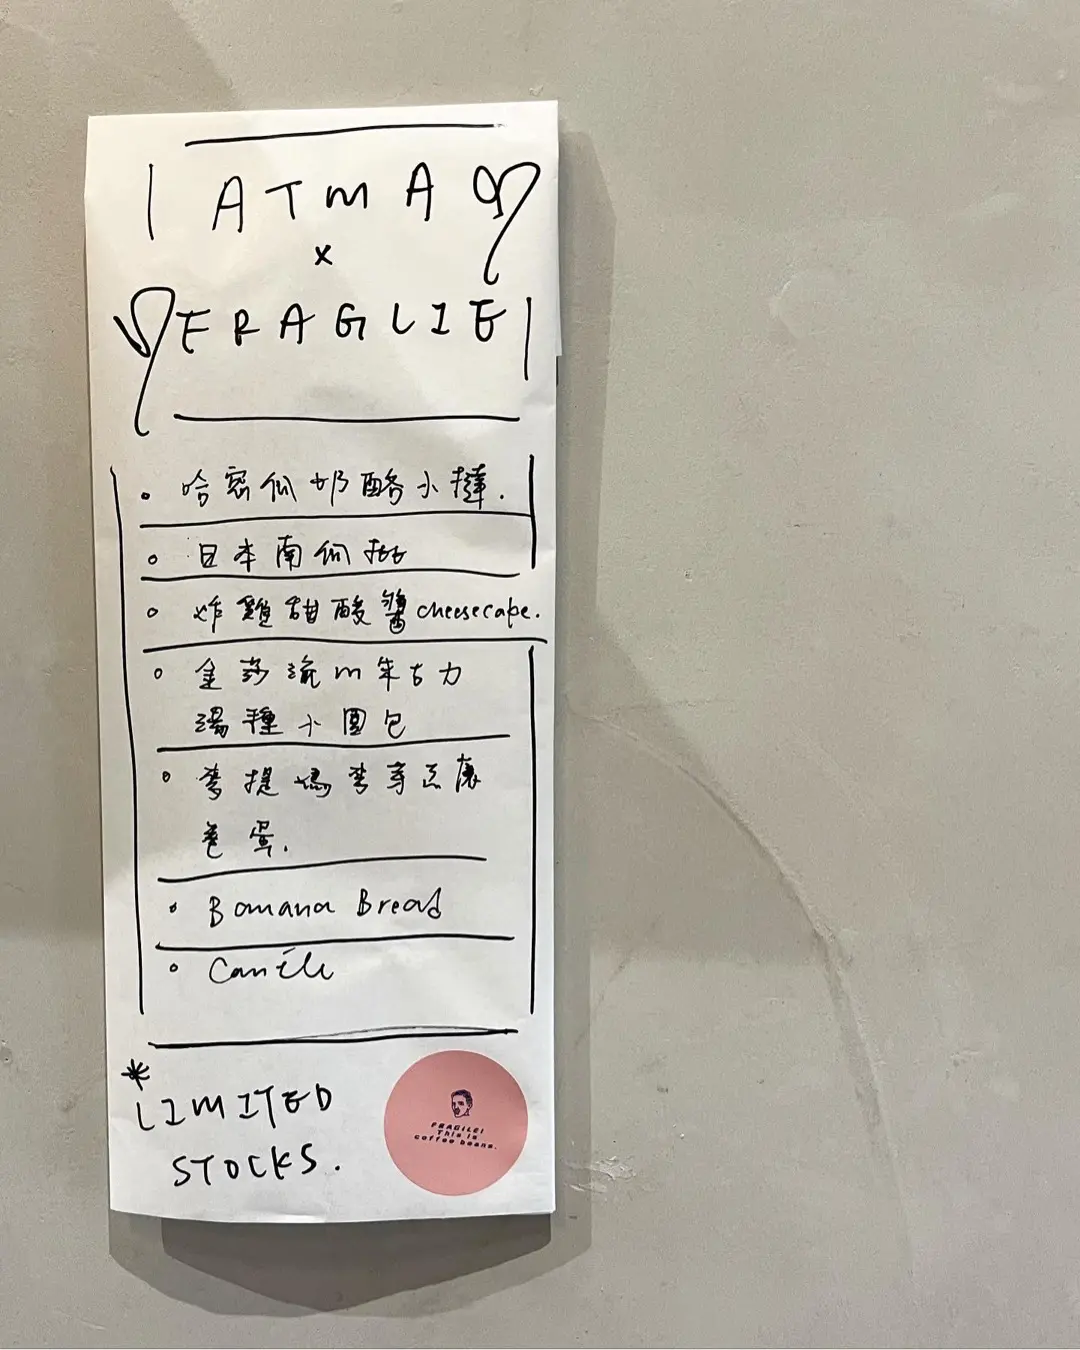 ATMA
x
FRAGLIE
哈密瓜奶酪小撻.
日本南瓜批
炸雞甜酸醬cheesecake.
金莎流心朱古力
湯種小圓包
卷蛋.
Banana Bread
Canélé
*LIMITED
STOCKS.
FRAGILE!
This is
coffee beans.